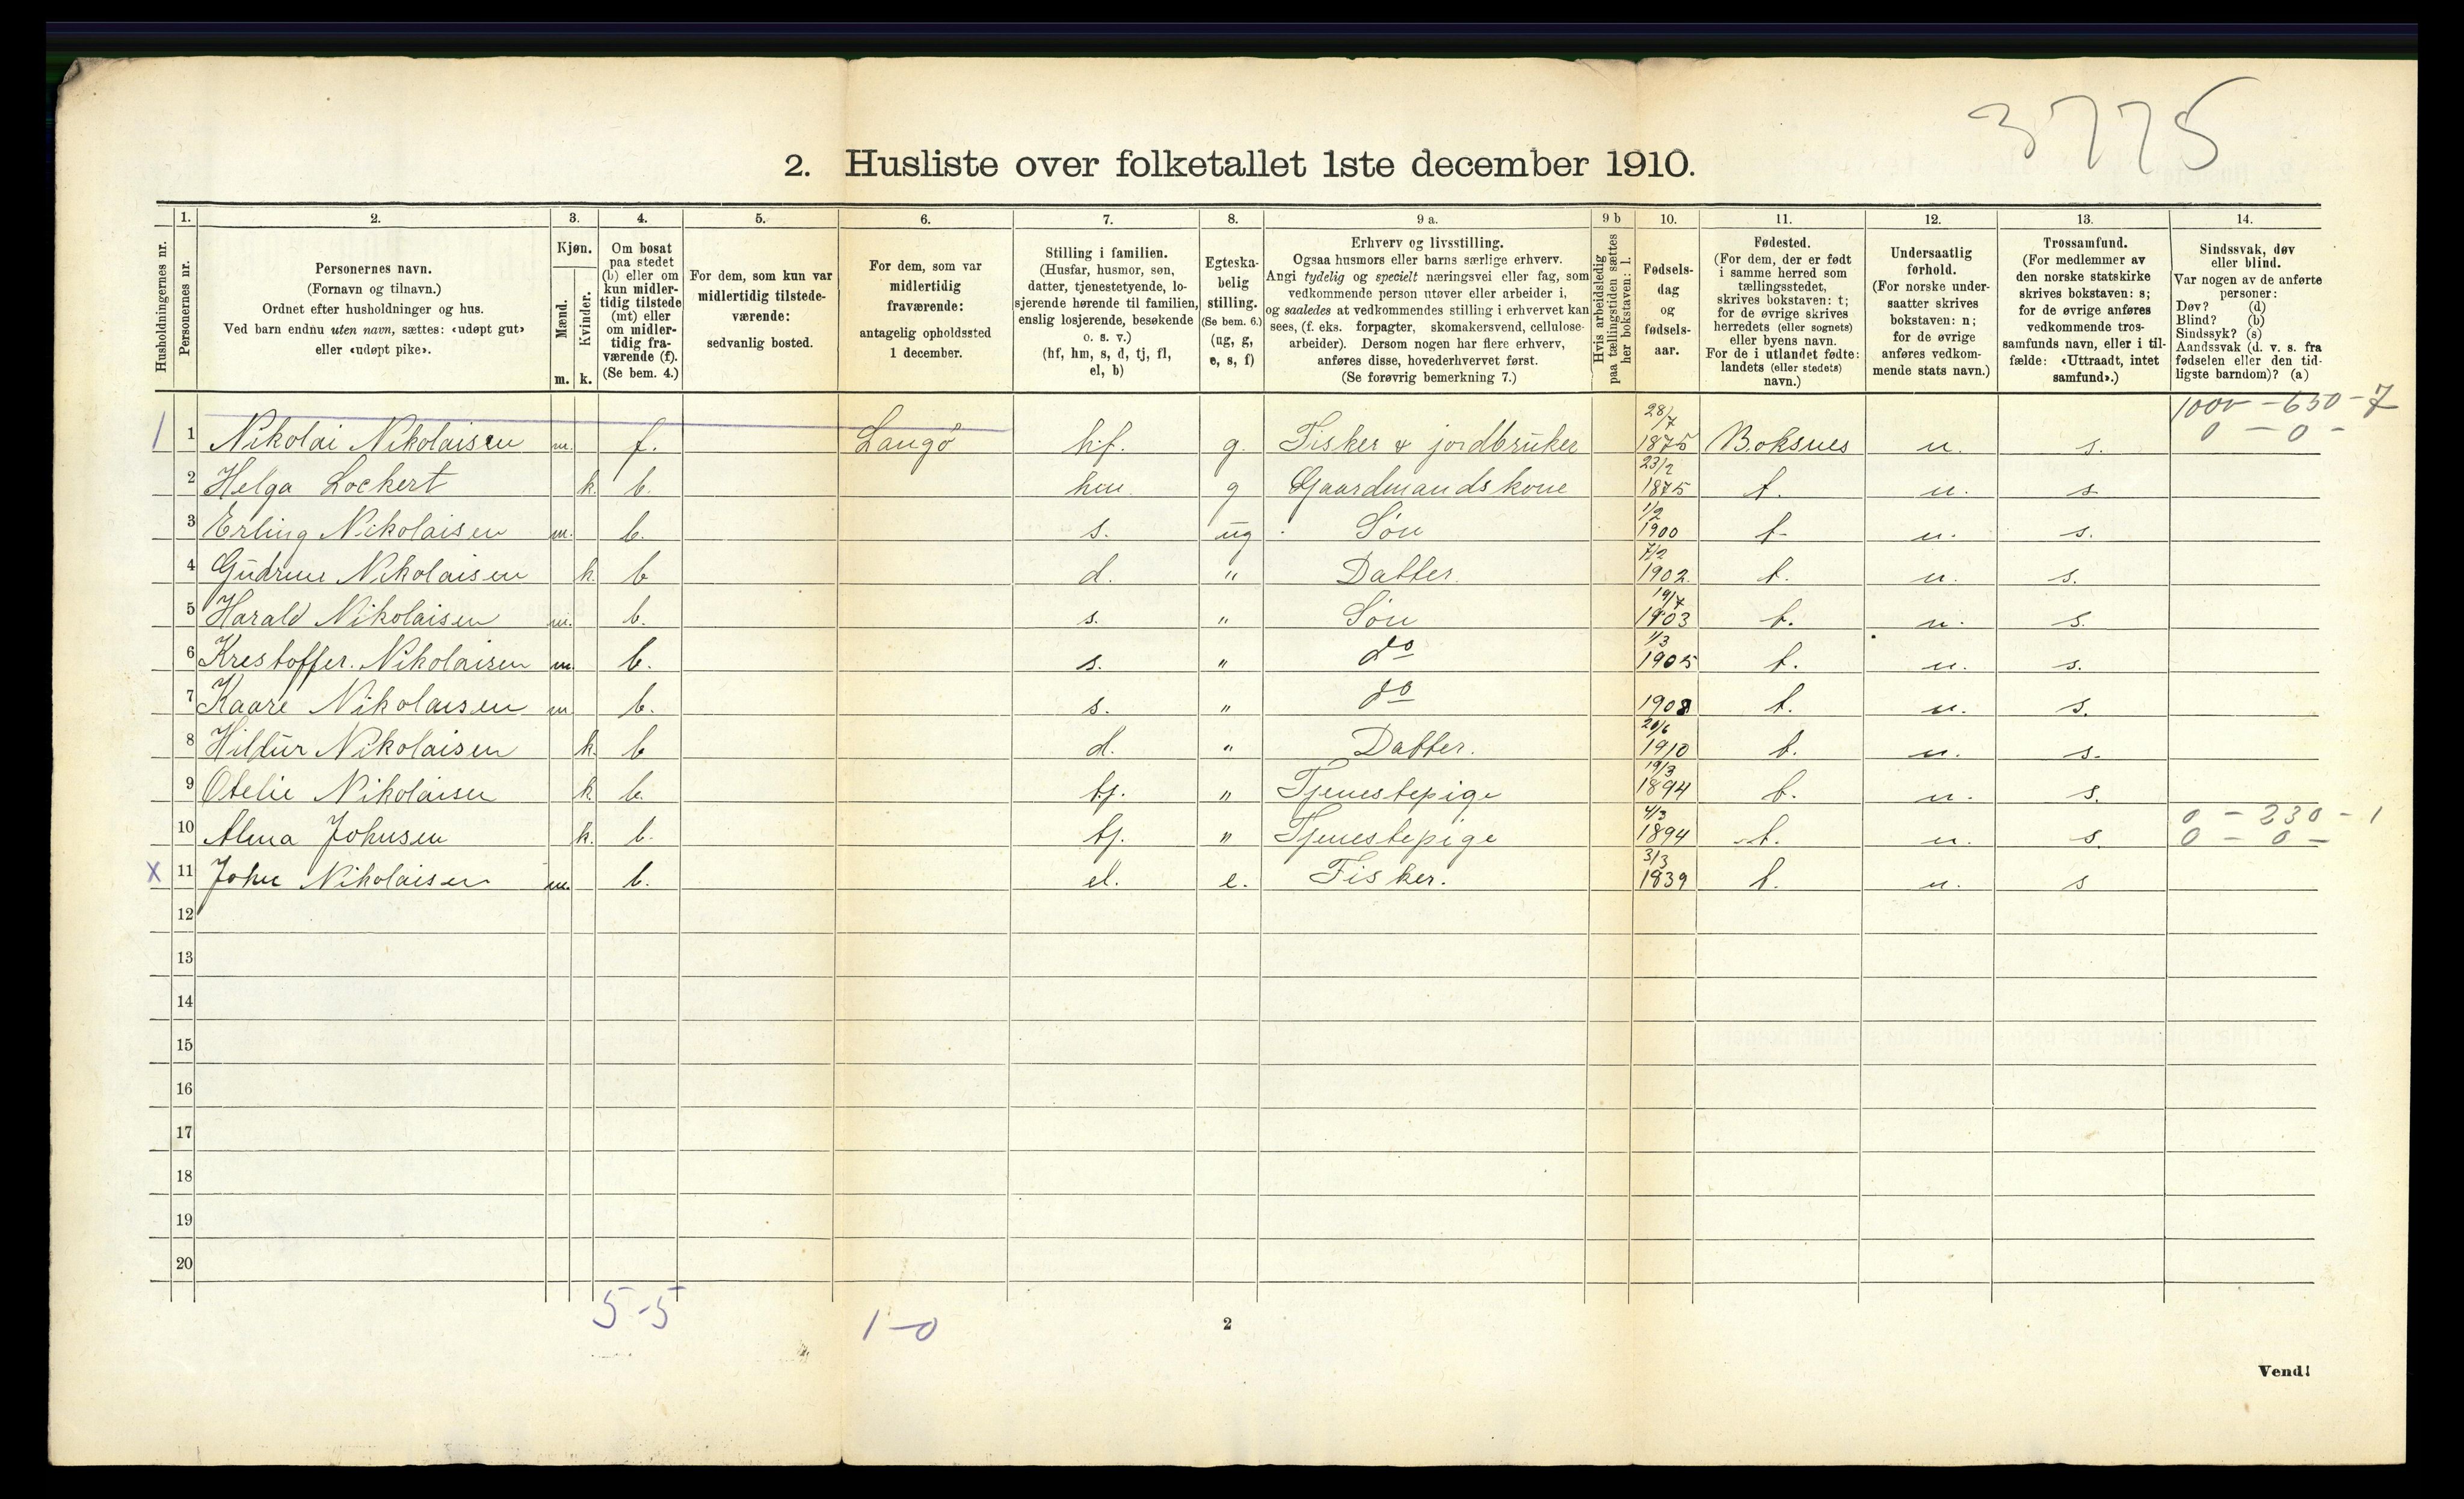 3775
2. Husliste over folketallet 1ste december 1910.
Husholdningernes nr.
1. Personernes nr.
2. Personernes navn.
(Fornavn og tilnavn.)
Ordnet efter husholdninger og hus.
Ved barn endnu uten navn, sættes: «udøpt gut»
eller «udøpt pike».
3. Kjøn.
Mænd. m.
Kvinder. k.
4. Om bosat
paa stedet
(b) eller om
kun midler-
tidig tilstede
(mt) eller
om midler-
tidig fra-
værende (f).
(Se bem. 4.)
5. For dem, som kun var
midlertidig tilstede-
værende:
sedvanlig bosted.
6. For dem, som var
midlertidig
fraværende:
antagelig opholdssted
1 december.
7. Stilling i familien.
(Husfar, husmor, søn,
datter, tjenestetyende, lo-
sjerende hørende til familien,
enslig losjerende, besøkende
o. s. v.)
(hf, hm, s, d, tj, fl,
el, b)
8. Egteska-
belig
stilling.
(Se bem. 6.)
(ug, g,
e, s, f)
9 a. Erhverv og livsstilling.
Ogsaa husmors eller barns særlige erhverv.
Angi tydelig og specielt næringsvei eller fag, som
vedkommende person utøver eller arbeider i,
og saaledes at vedkommendes stilling i erhvervet kan
sees, (f. eks. forpagter, skomakersvend, cellulose-
arbeider). Dersom nogen har flere erhverv,
anføres disse, hovederhvervet først.
(Se forøvrig bemerkning 7.)
9 b Hvis arbeidsledig
paa tællingstiden sættes
her bokstaven: l.
10. Fødsels-
dag
og
fødsels-
aar.
11. Fødested.
(For dem, der er født
i samme herred som
tællingsstedet,
skrives bokstaven: t;
for de øvrige skrives
herredets (eller sognets)
eller byens navn.
For de i utlandet fødte:
landets (eller stedets)
navn.)
12. Undersaatlig
forhold.
(For norske under-
saatter skrives
bokstaven: n;
for de øvrige
anføres vedkom-
mende stats navn.)
13. Trossamfund.
(For medlemmer av
den norske statskirke
skrives bokstaven: s;
for de øvrige anføres
vedkommende tros-
samfunds navn, eller i til-
fælde: «Uttraadt, intet
samfund».)
14. Sindssvak, døv
eller blind.
Var nogen av de anførte
personer:
Døv? (d)
Blind? (b)
Sindssyk? (s)
Aandssvak (d. v. s. fra
fødselen eller den tid-
ligste barndom)? (a)
1000 - 650 - 7
0 - 0 -
1 1 Nikolai Nikolaisen m. f. Langö h.f. g. Fisker & jordbruker 28/7 1875 Boksnes n. s.
2 Helga Lockert k. b. hm g Gaardmandskone 23/2 1875 t. n. s.
3 Erling Nikolaisen m. b. s. ug Sön 1/2 1900 t. n. s.
4 Gudrun Nikolaisen k. b d. " Datter. 7/2 1902. t. n. s.
5 Harald Nikolaisen m. b. s. " Sön 19/7 1903 t. n. s.
6 Krestoffer. Nikolaisen m. b. s. " do 1/3 1905 t. n. s.
7 Kaare Nikolaisen m b. s. " do 1908 t. n. s.
8 Hildur Nikolaisen k. b d. " Datter. 20/6 1910 t. n. s.
9 Otelie Nikolaisen k b. tj. " Tjenestepige 19/3 1894 t. n. s.
10 Alma Johnsen k. b. tj. " Tjenestepige 4/3 1894 t. n. s. 0 - 230 - 1
0 - 0 -
x 11 John Nikolaisen m. b. el. e. Fisker. 3/3 1839 t. n. s
12
13
14
15
16
17
18
19
20
5-5 1-0
2
Vend!